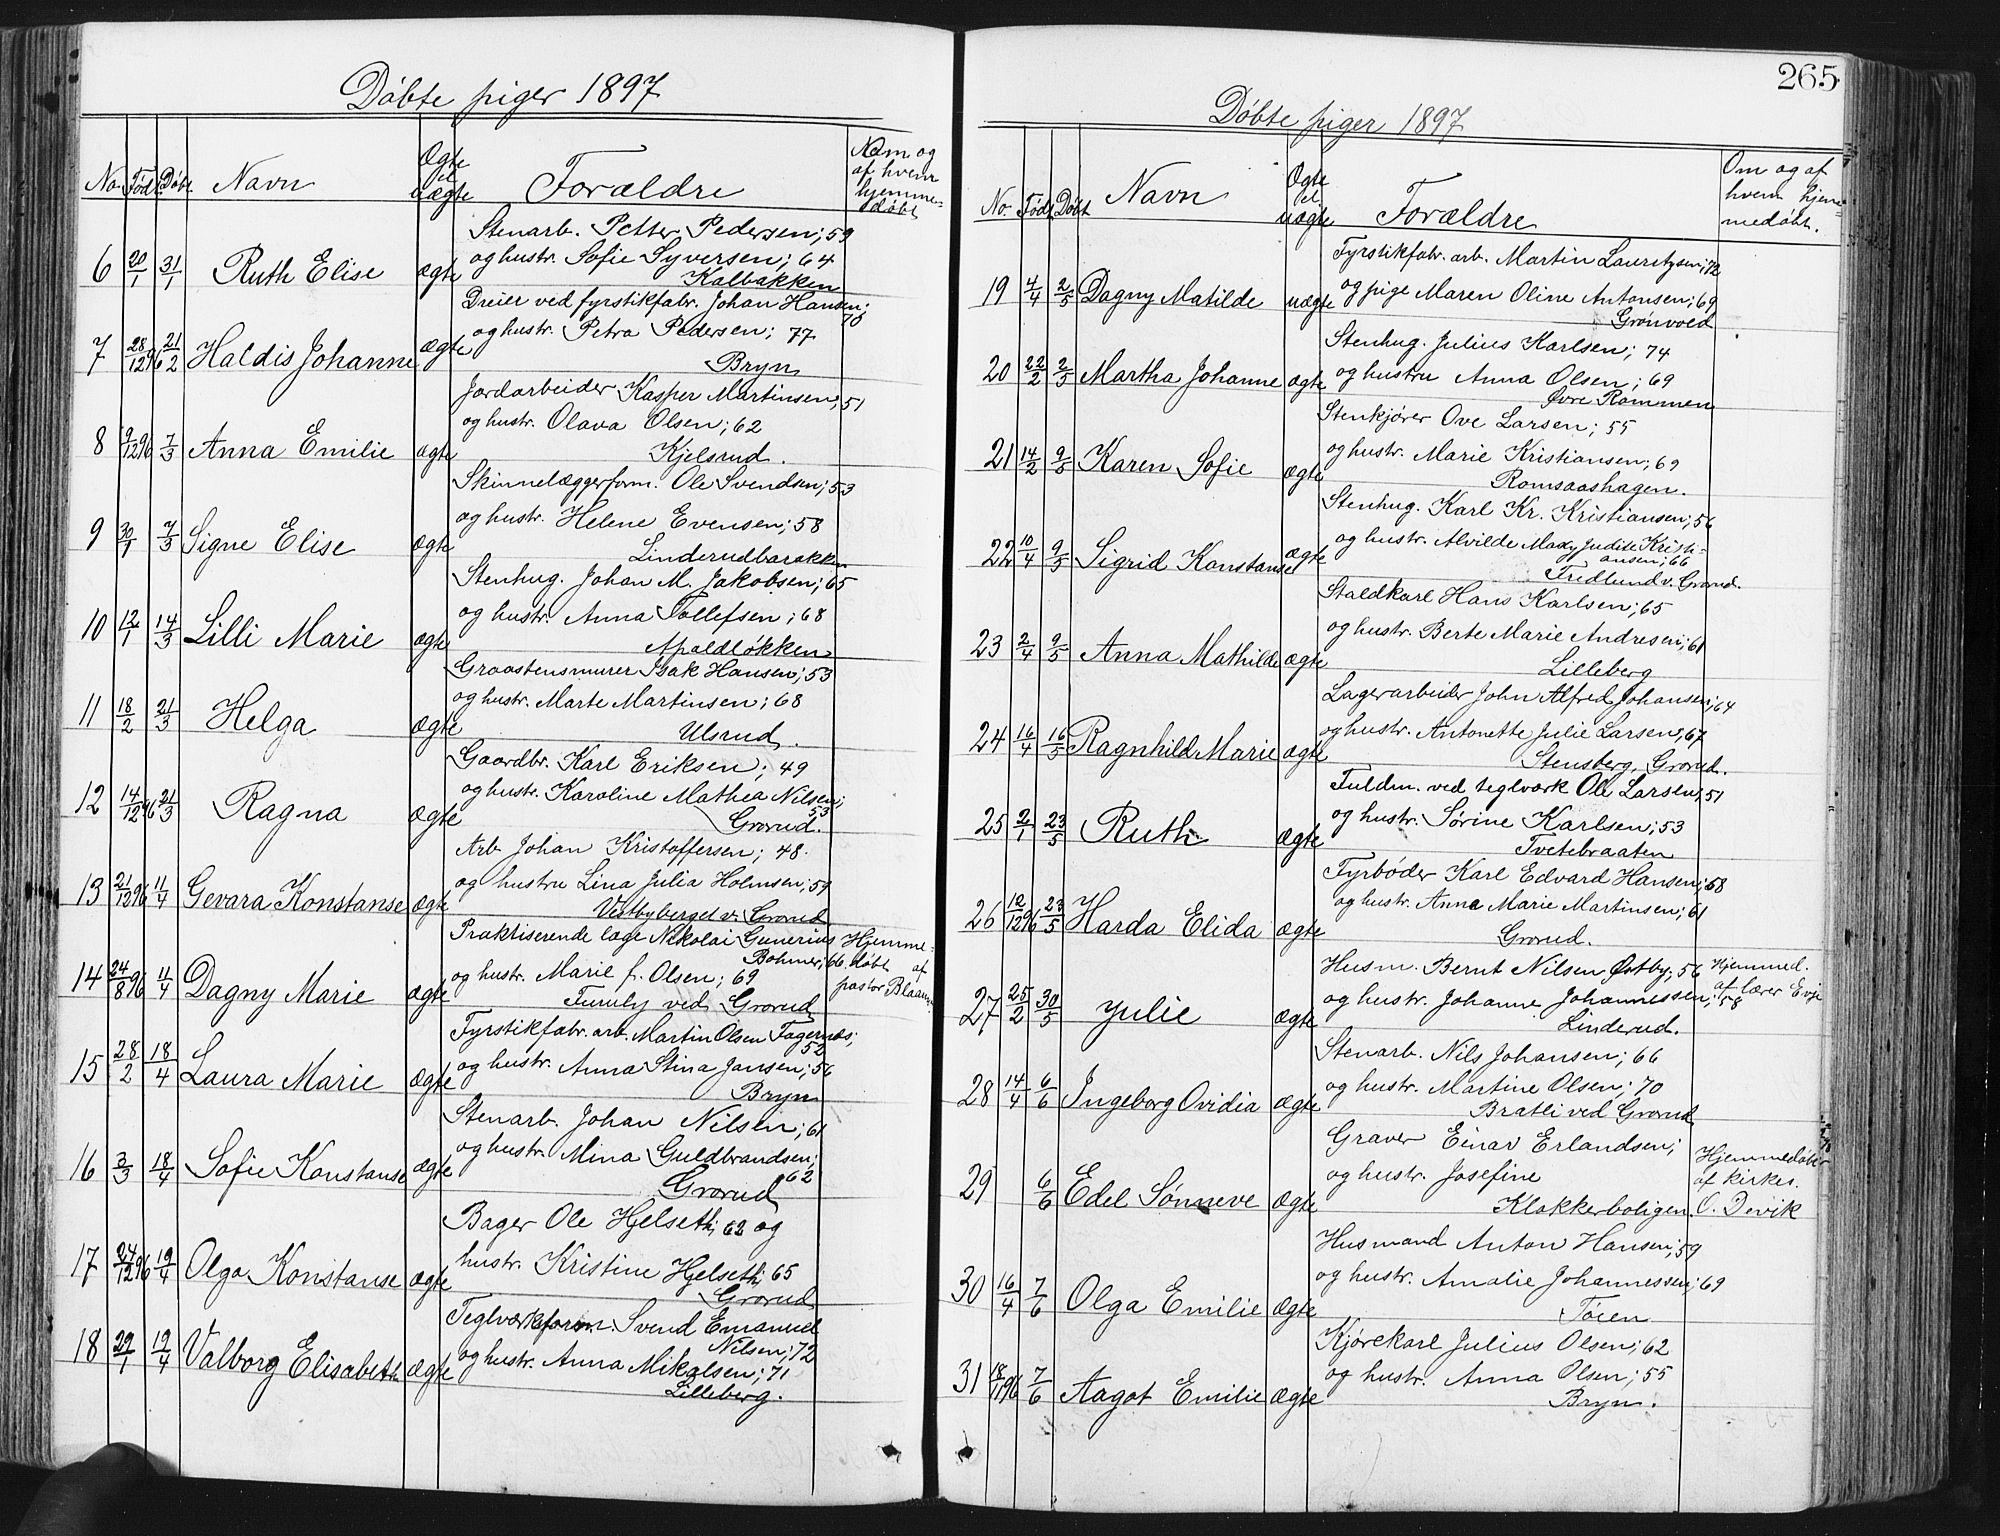 Døbte piger 1897
No Født Døbt Navn Ægte el. uægte Forældre Nam og af hvem hjemme=døbt
Stenarb. Petter Pedersen; 59
6 20/1 31/1 Ruth Elise ægte og hustr. Sofie Syversen; 64
Kalbakken
Dreier ved fyrstikfabr. Johan Hansen; 70
7 28/12 96 21/2 Haldis Johanne ægte og hustr. Petra Pedersen; 77
Bryn
Jordarbeider Kasper Martinsen; 51
8 9/12 96 7/3 Anna Emilie ægte og hustr. Olava Olsen; 62
Kjelsrud.
Skinnelæggerform. Ole Svendsen; 53
9 30/1 7/3 Signe Elise ægte og hustr. Helene Evensen; 58
Linderudbarakken
Stenhug. Johan M. Jakobsen; 65
10 12/1 14/3 Lilli Marie ægte og hustr. Anna Tollefsen; 68
Apaldløkken
Graastensmurer Isak Hansen; 53
11 18/2 21/3 Helga ægte og hustr. Marte Martinsen; 68
Ulsrud.
Gaardbr. Karl Eriksen; 49
12 14/12 96 21/3 Ragna ægte og hustr. Karoline Mathea Nilsen; 53
Grorud.
Arb. Johan Kristoffersen; 48.
13 21/12 96 11/4 Gevara Konstanse ægte og hustru Lina Julia Holmsen; 59
Vestbyberget v. Grorud
Praktiserende læge Nikolai Gunerius Bohmer; 66. Hjemme=døbt af pastor
14 24/8 96 11/4 Dagny Marie ægte og hustr. Marie f. Olsen; 69
Furuly ved Grorud
Fyrstikfabr. arb. Martin Olsen Fagernæs; 52
15 28/2 18/4 Laura Marie ægte og hustr. Anna Stina Jansen; 56
Bryn
Stenarb. Johan Nilsen; 61
16 3/3 18/4 Sofie Konstanse ægte og hustr. Mina Guldbrandsen; 62
Grorud
Bager Ole Hjelseth; 62 og
17 24/12 96 19/4 Olga Konstanse ægte hustr. Kristine Hjelseth; 65
Grorud
Teglverksform. Svend Emanuel Nilsen; 72
18 29/1 19/4 Valborg Elisabeth ægte og hustr. Anna Mikalsen; 71
Lilleberg.
265
Døbte piger 1897
No. Født Døbt Navn Ægte el. uægte Forældre Om og af hvem hjem=medøbt.
Fyrstikfabr. arb. Martin Lauritzsen; 72
19 4/4 2/5 Dagny Matilde uægte og pige Maren Oline Antonsen; 69
Grønvold
Stenhug. Julius Karlsen; 74
20 22/2 2/5 Martha Johanne ægte og hustru Anna Olsen; 69
Øvre Rommen
Stenkjører Ove Larsen; 55
21 14/2 9/5 Karen Sofie ægte og hustr. Marie Kristiansen; 69
Romsaashagen.
Stenhug. Karl Kr. Kristiansen; 56
22 10/4 9/5 Sigrid Konstanse ægte og hustr. Alvilde Maxy Judite Kristi-
ansen; 66
Fredlund v. Grorud.
Staldkarl Hans Karlsen; 65
23 2/4 9/5 Anna Mathilde ægte og hustr. Berte Marie Andresen; 61
Lilleberg
Lagerarbeider John Alfred Johansen; 64
24 16/4 16/5 Ragnhild Marie ægte og hustr. Antonette Julie Larsen; 67
Stensberg, Grorud.
Fuldm. ved teglværk Ole Larsen; 51
25 2/1 23/5 Ruth ægte og hustr. Sørine Karlsen; 53
Tvetebraaten
Fyrbøder Karl Edvard Hansen; 58
26 12/12 96 23/5 Harda Elida ægte og hustr. Anna Marie Martinsen; 61
Grorud.
Husm. Bernt Nilsen Østby; 56 Hjemmed. af lærer Evje
27 25/2 30/5 Julie ægte og hustr. Johanne Johannessen; 58
Linderud.
Stenarb. Nils Johansen; 66
28 14/4 6/6 Ingeborg Ovidia ægte og hustr. Martine Olsen; 70
Bratli ved Grorud
Graver Einar Erlandsen;
29 6/6 Edel Sønneve ægte og hustr. Josefine Hjemmedøbt af kirkes. O. Devik
Klokkerboligen.
Husmand Anton Hansen; 59
30 16/4 7/6 Olga Emilie ægte og hustr. Amalie Johannessen; 69
Tøien
Kjørekarl Julius Olsen; 62
31 18/11 96 7/6 Aagot Emilie ægte og hustr. Anna Olsen; 55
Bryn.